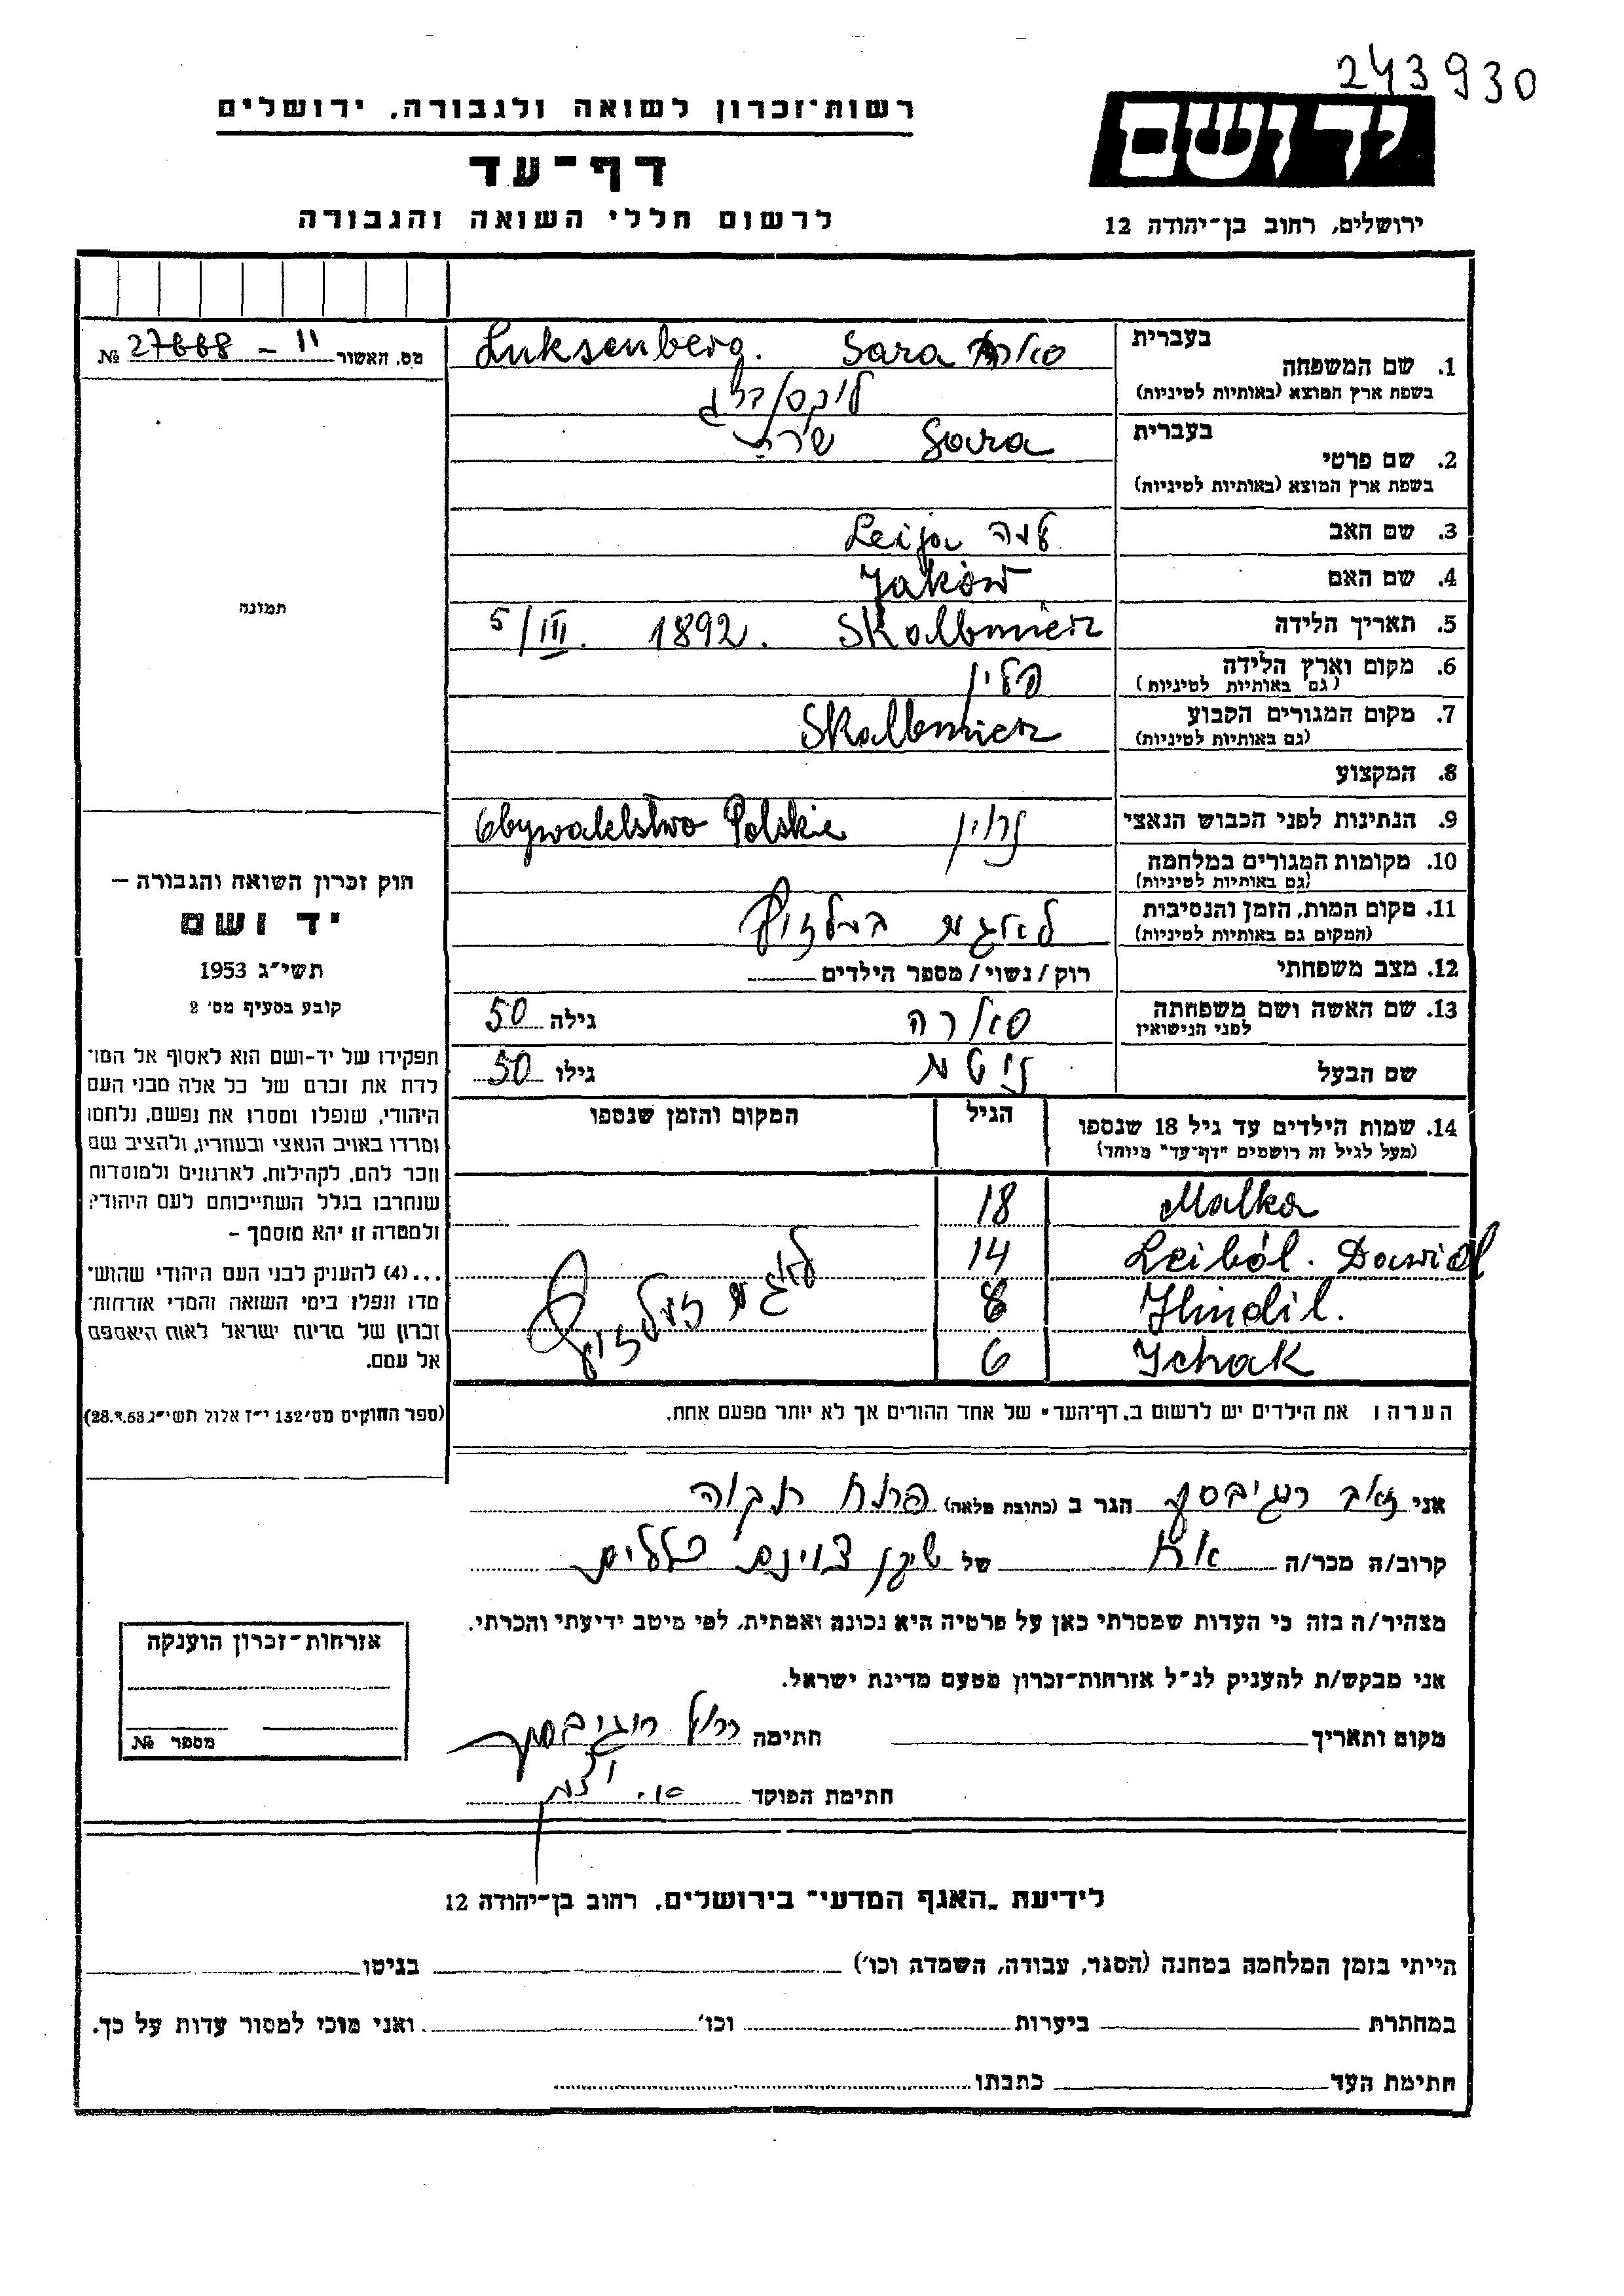 243930
יד ושם
ירושלים, רחוב בן־יהודה 12
רשות־זכרון לשואה ולגבורה, ירושלים
דף־עד
לרשום חללי השואה והגבורה
מס. האשור 27668 - 11 №
תמונה
חוק זכרון השואה והגבורה –
יד ושם
תשי״ג 1953
קובע בסעיף מס׳ 2
תפקידו של יד-ושם הוא לאסוף אל המו־
לדת את זכרם של כל אלה מבני העם
היהודי, שנפלו ומסרו את נפשם, נלחמו
ומרדו באויב הנאצי ובעוזריו, ולהציב שם
וזכר להם, לקהילות, לארגונים ולמוסדות
שנחרבו בגלל השתייכותם לעם היהודי;
ולמטרה זו יהא מוסמך –
...(4) להעניק לבני העם היהודי שהוש־
מדו ונפלו בימי השואה והמרי אזרחות־
זכרון של מדינת ישראל לאות היאספם
אל עמם.
(ספר החוקים מס׳ 132 י״ז אלול תשי״ג 28.8.53)
בעברית
1. שם המשפחה Luksenberg. Sara
בשפת ארץ המוצא (באותיות לטיניות)
בעברית
2. שם פרטי Sara שרה
בשפת ארץ המוצא (באותיות לטיניות)
3. שם האב Leija
4. שם האם Jaków
5. תאריך הלידה 5/III. 1892. Skalbmierz
6. מקום וארץ הלידה פולין
(גם באותיות לטיניות)
7. מקום המגורים הקבוע Skalbmierz
(גם באותיות לטיניות)
8. המקצוע
9. הנתינות לפני הכבוש הנאצי Obywatelstwo Polskie
10. מקומות המגורים במלחמה
(גם באותיות לטיניות)
11. מקום המות, הזמן והנסיבות
(המקום גם באותיות לטיניות)
12. מצב משפחתי רוק / נשוי / מספר הילדים
13. שם האשה ושם משפחתה סאלרה גילה 50
לפני הנישואין
שם הבעל גילו 50
14. שמות הילדים עד גיל 18 שנספו הגיל המקום והזמן שנספו
(מעל לגיל זה רושמים ״דף־עד״ מיוחד)
Malka 18
Leiból. Dawid 14
Jhindil. 8
Ichak 6
הערה: את הילדים יש לרשום ב„דף־העד״ של אחד ההורים אך לא יותר מפעם אחת.
אני זאב הגר ב (כתובת מלאה) פתח תקוה
קרוב/ה מכר/ה אח של שיכון
מצהיר/ה בזה כי העדות שמסרתי כאן על פרטיה היא נכונה ואמתית, לפי מיטב ידיעתי והכרתי.
אני מבקש/ת להעניק לנ״ל אזרחות־זכרון מטעם מדינת ישראל.
מקום ותאריך חתימה
חתימת הפוקד
אזרחות־זכרון הוענקה
מספר №
לידיעת „האגף המדעי״ בירושלים, רחוב בן־יהודה 12
הייתי בזמן המלחמה במחנה (הסגר, עבודה, השמדה וכו׳) בגיטו
במחתרת ביערות וכו׳ ואני מוכן למסור עדות על כך.
חתימת העד כתבתו